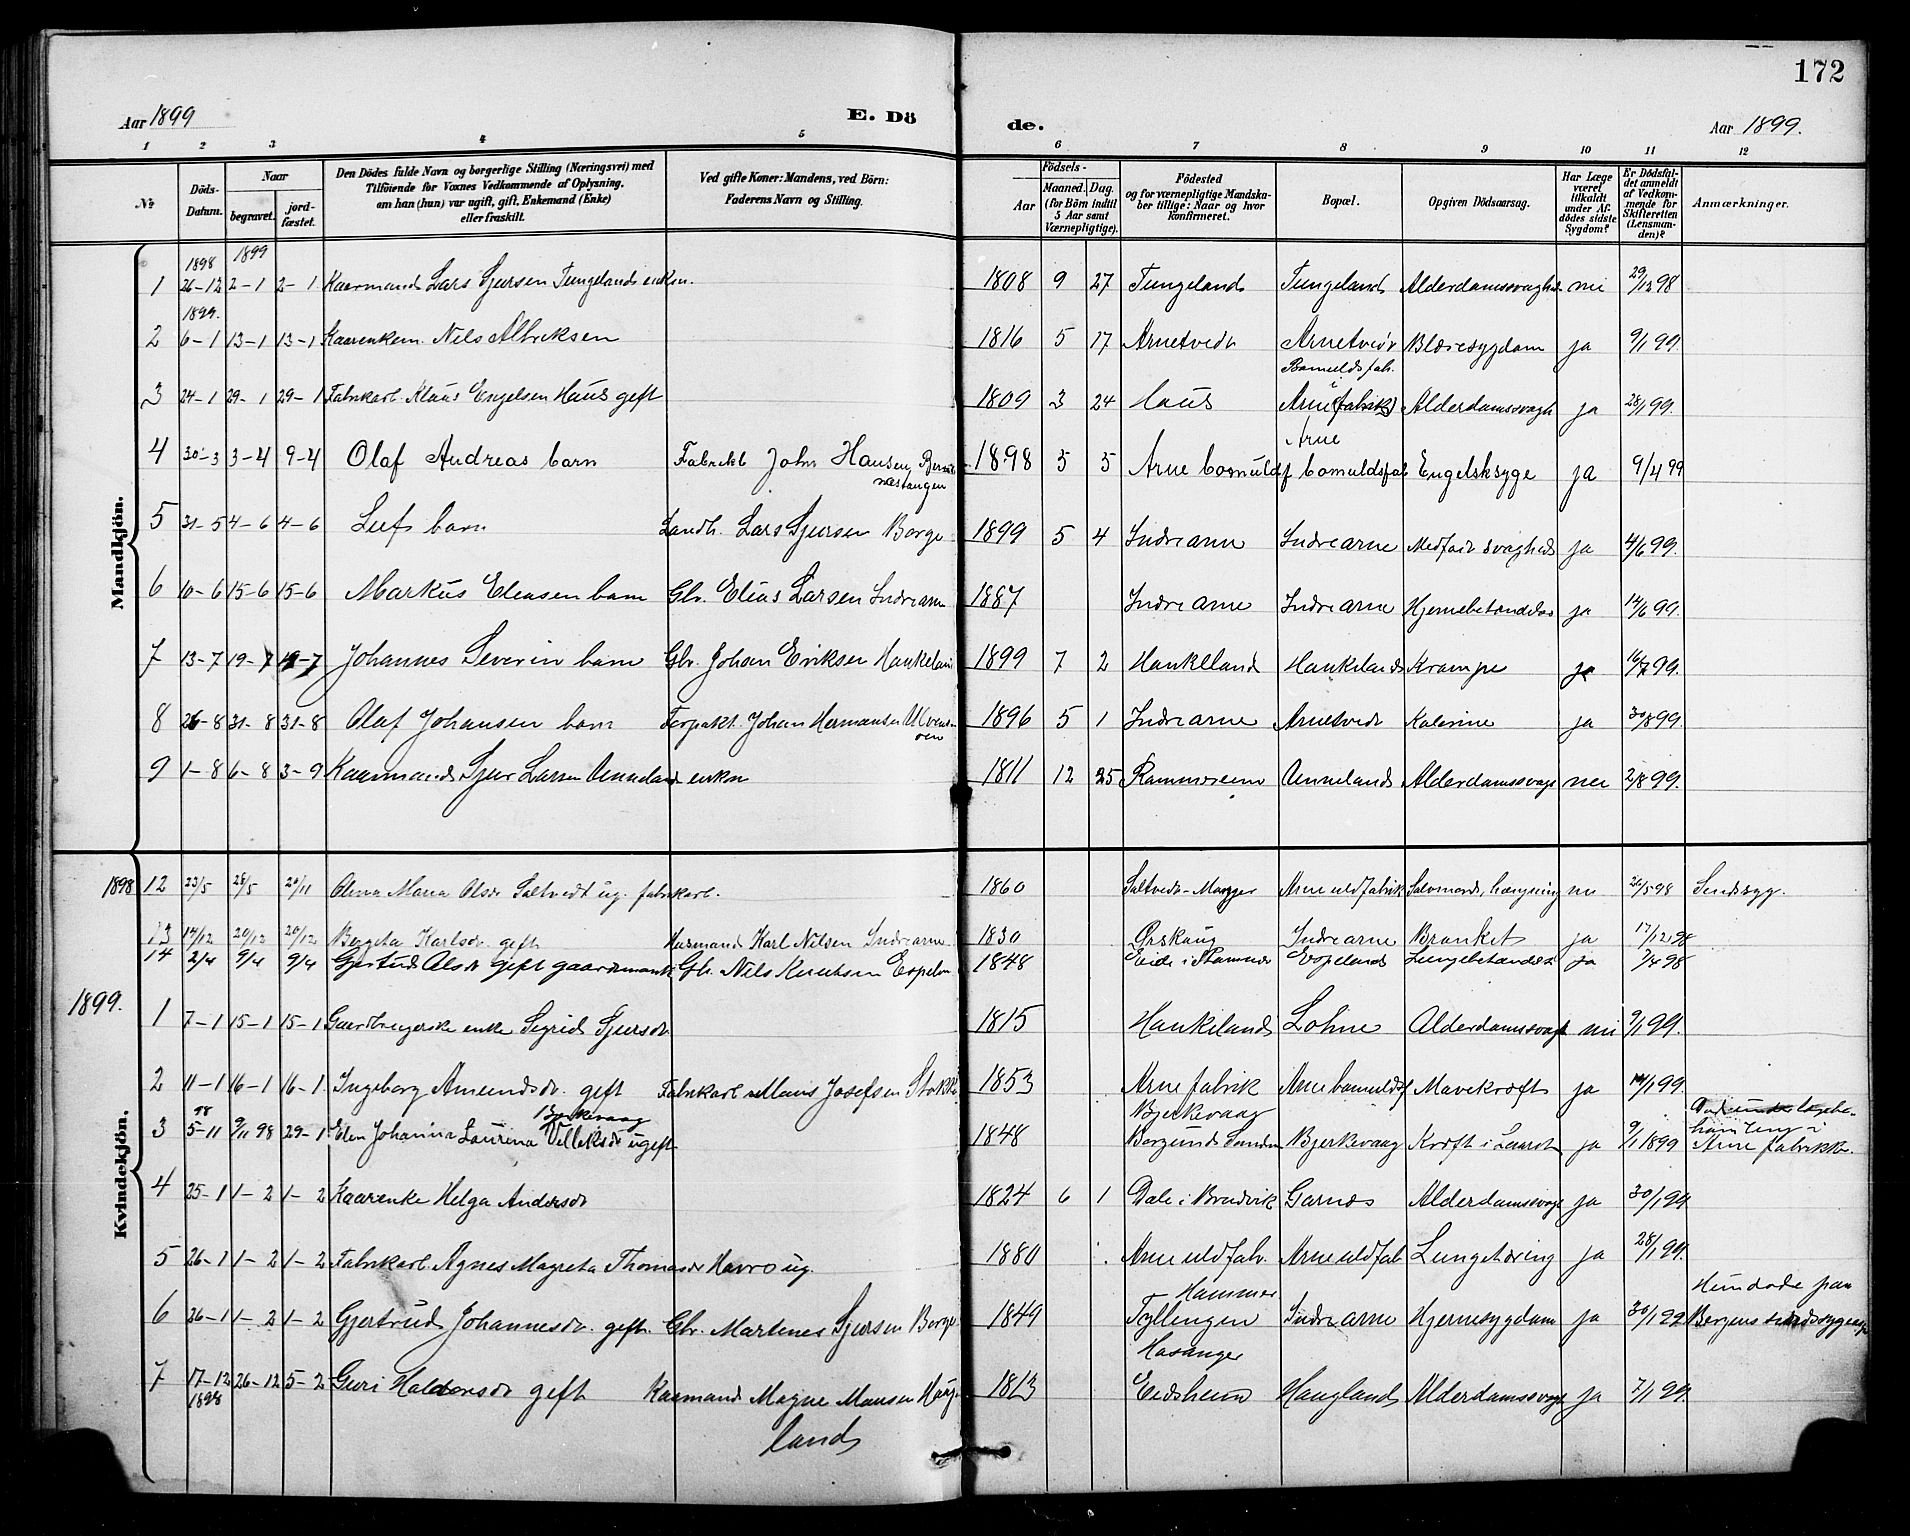 172
Aar 1899 E. Dö de. Aar 1899.
1 2 3 4 5 6 7 8 9 10 11 12
No Döds-Datum. Naar begravet. jord-fæstet. Den Dödes fulde Navn og borgerlige Stilling (Næringsvei) med Tilföiende for Voxnes Vedkommende af Oplysning, om han (hun) var ugift, gift, Enkemand (Enke) eller fraskilt. Ved gifte Koner: Mandens, ved Börn: Faderens Navn og Stilling. Födsels- Aar Maaned. Dag. (for Börn indtil 5 Aar samt Værnepligtige). Födested og for værnepligtige Mandska-ber tillige: Naar og hvor Konfirmeret. Bopæl. Opgiven Dödsaarsag. Har Læge været tilkaldt under Af-dödes sidste Sygdom? Er Dödsfal-det anmeldt af Vedkom-mende for Skifteretten (Lensman-den)? Anmærkninger.
Mandkjön.
1898 1899
1 26-12 2-1 2-1 Kaarmand Lars Sjursen Tungeland enkm. 1808 9 27 Tungeland Tungeland Alderdomssvaghed nei 29/12 98
1899.
2 6-1 13-1 13-1 Kaarenkem. Nils Albriksen 1816 5 17 Arnetvedt Arnetvedt Blæresygdom ja 9/1 99.
Bomuldsfab.
3 24-1 29-1 29-1 Fabrikarb. Klaus Engelsen Haus gift 1809 3 24 Haus Arne (fabrik) Alderdomssvagh ja 28/1 99.
Arne
4 30-3 3-4 9-4 Olaf Andreas barn Fabrikb John Hansen 1898 5 5 Arne bomuldsf bomuldsfab Engelsksyge ja 9/4 99
5 31-5 4-6 4-6 Leif barn Landh. Lars Sjursen Borge 1899 5 4 Indre arne Indre arne Medfødt svaghed ja 4/6 99.
6 10-6 15-6 15-6 Markus Eliasen barn Gbr. Elias Larsen Indrearne 1887 Indre arne Indre arne Hjernebetændelse ja 14/6 99.
7 13-7 19-7 19-7 Johannes Severin barn Gbr. Johan Eriksen Haukeland 1899 7 2 Haukeland Haukeland Krampe ja 16/7 99.
8 26-8 31-8 31-8 Olaf Johansen barn Johan Hermansen 1896 5 1 Indre arne Arnetvedt Kolerine ja 30/8 99.
9 1-8 6-8 3-9 Kaarmand Sjur Larsen Unneland enkm 1811 12 25 Unneland Alderdomssvagh nei 2/8 99.
Kvindekjön.
1898 12 23/5 28/5 20/11 Anna Maria Olsdr Saltvedt ug. fabrikarb. 1860 Saltvedt-Manger Arne uldfabrik Selvmord, hængning nei 26/5 98 Sindssyg.
13 14/12 20/12 20/12 Bergeta Karlsdr. gift Husmand Karl Nilsen Indrearne 1830 Ørskaug Indrearne Bronkit ja 17/12 98
14 2/4 9/4 9/4 Gjertrud Olsdr gift gaardmands Gbr. Nils Knutsen Espeland 1848 Eide i Stamnes Espeland Lungebetændelse ja 7/4 98
1899.
1 7-1 15-1 15-1 Gaardbrugerske enke Sigrid Sjursdr 1815 Haukeland Lohne Alderdomssvagh nei 9/1 99.
2 11-1 16-1 16-1 Ingeborg Amundsdr. gift Fabrikarb Mons Josefsen Stokke 1853 Arne fabrik Arne bomuldsf Mavekræft ja 14/1 99.
98 Bjerkevaag Bjerkevaag
3 5-11 9/11 98 29-1 Elen Johanna Laurina Villeksdr ugift 1848 Borgund Søndm Bjerkevaag Kræft i Laaret ja 9/1 1899 Død under lægebehandling i Arne fabrikke.
4 25-1 1-2 1-2 Kaarenke Helga Andersdr 1824 6 1 Dale i Bruvik Garnes Alderdomssvagh ja 30/1 99
5 26-1 1-2 1-2 Fabrikarb. Agnes Magreta Thomasdr Havro ug. 1880 Arne uldfab. Arne uldfab Lungetæring ja 28/1 99.
Hammer
6 26-1 1-2 1-2 Gjertrud Johannesdr. gift. Gbr. Martenes Sjursen Borge 1849 Tyllingen Indre arne Hjernesygdom ja 30/1 99 Hun døde paa Bergens sindssygeasyl
Hosanger
7 17-12 1898 26-12 5-2 Guri Haldorsdr gift Kaarmand Magne Monsen Haugland 1813 Eidsheim Haugland Alderdomssvagh ja 7/1 99.